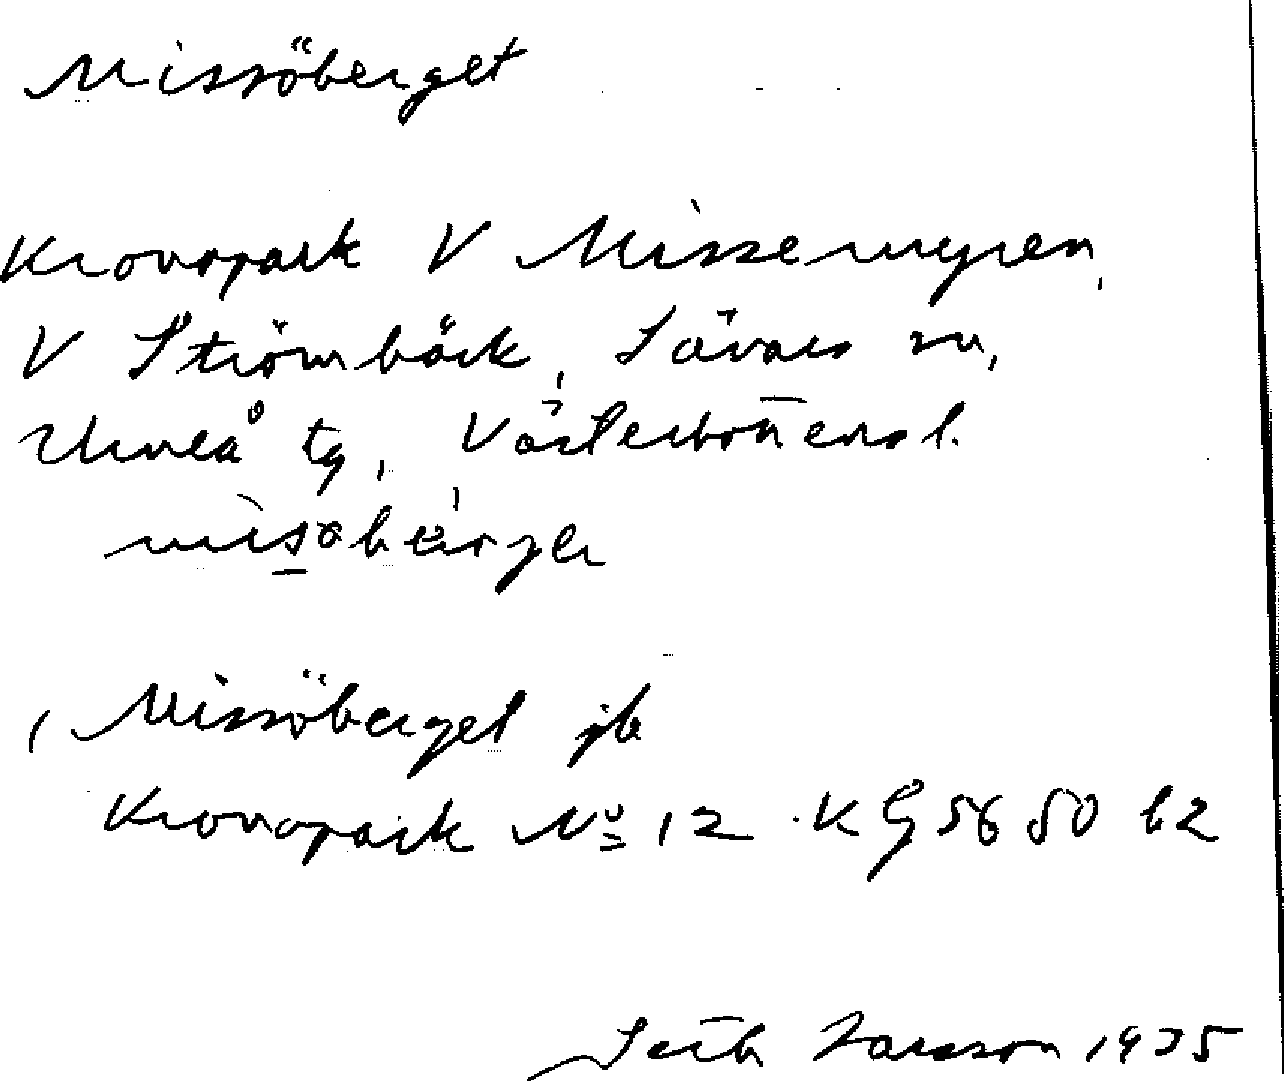 Missöberget
Kronopark V Missemyren,
V Strömbäck, Sävars sn,
Umeå tg, Västerbottens l.
Missöberget jb
Kronopark No 12 KG 5650 b2
Seth Larsson 1935